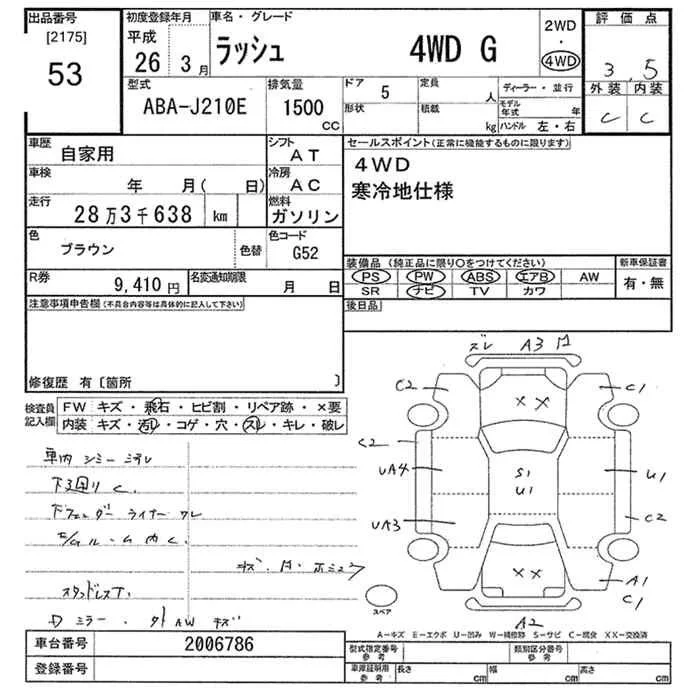 出品番号
[2175]
53
初度登録年月
平成
26 3月
車名・グレード
ラッシュ 4WD G
2WD
・
4WD
評価点
3.5
外装 内装
C C
型式
ABA-J210E
排気量
1500
CC
ドア 5
形状
定員 人
積載 kg
ディーラー・並行
モデル年式 年
ハンドル 左・右
車歴
自家用
シフト
AT
車検
年 月( 日)
冷房
AC
走行
28万3千638 km
燃料
ガソリン
色
ブラウン
色替
色コード
G52
R券
9,410円
名変通知期限
月 日
セールスポイント(正常に機能するものに限ります)
4WD
寒冷地仕様
装備品(純正品に限り○をつけてください)
PS PW ABS エアB AW
SR ナビ TV カワ
新車保証書
有・無
後日品
注意事項申告欄(不具合内容等は具体的に記入して下さい)
修復歴 有〔箇所 〕
検査員記入欄
FW キズ・飛石・ヒビ割・リペア跡・×要
内装 キズ・汚レ・コゲ・穴・スレ・キレ・破レ
車内 シミ ヨゴレ
下廻り C
フェンダー ライナー ワレ
ルーム内 C
スタッドレス
ミラー・ AW キズ
ズレ A3
C2 C1
××
C2
UA4
S1
U1
U1
UA3
C2
××
A1
C1
A2
スペア
A-キズ E-エクボ U-凹み W-補修跡 S-サビ C-腐食 XX-交換済
車台番号 2006786
登録番号
型式指定番号
参考
類別区分番号
参考
車庫証明用
参考
長さ cm 幅 cm 高さ cm